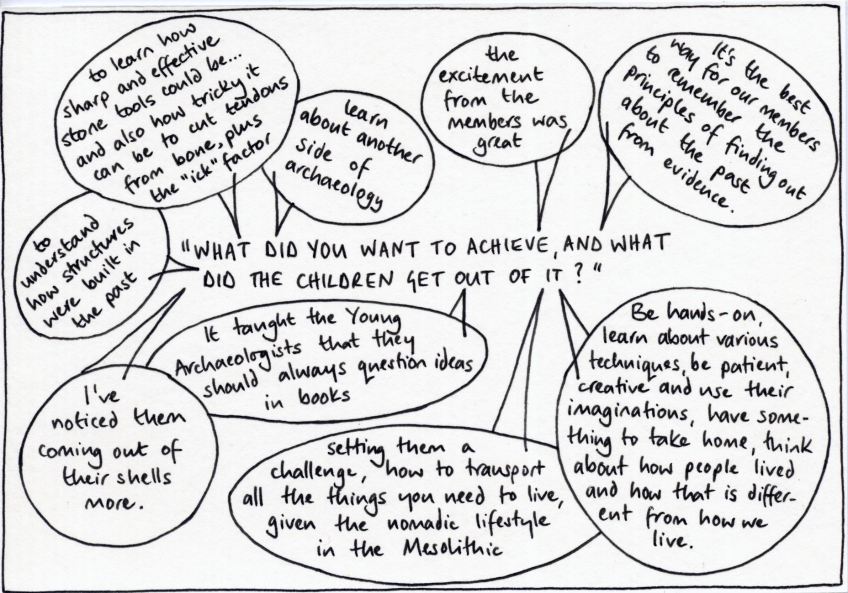 to learn how
sharp and effective
stone tools could be...
and also how tricky it
can be to cut tendons
from bone, plus
the "ick" factor
learn
about another
side of
archaeology
the
excitement
from the
members was
great
It's the best
way for our members
to remember the
principles of finding out
about the past
from evidence.
to
understand
how structures
were built in
the past
"WHAT DID YOU WANT TO ACHIEVE, AND WHAT
DID THE CHILDREN GET OUT OF IT?"
It taught the Young
Archaeologists that they
should always question ideas
in books
I've
noticed them
coming out of
their shells
more.
setting them a
challenge, how to transport
all the things you need to live,
given the nomadic lifestyle
in the Mesolithic
Be hands-on,
learn about various
techniques, be patient,
creative and use their
imaginations, have some-
thing to take home, think
about how people lived
and how that is differ-
ent from how we
live.